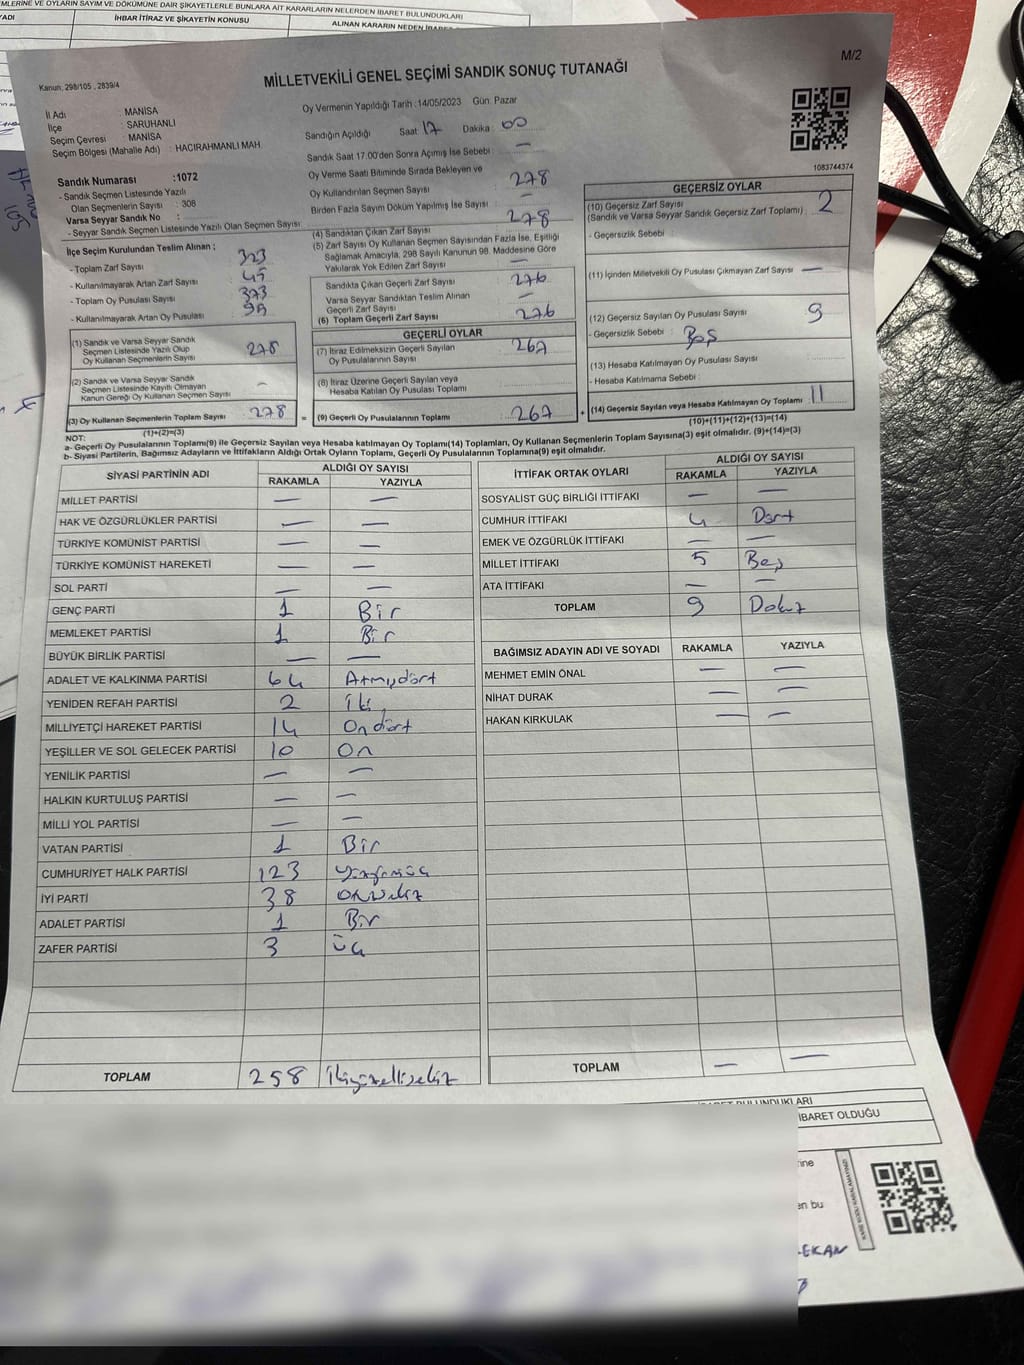 MLERİNE VE OYLARIN SAYIM VE DÖKÜMÜNE DAİR ŞİKAYETLERLE BUNLARA AİT KARARLARIN NELERDEN İBARET BULUNDUKLARI
İHBAR İTİRAZ VE ŞİKAYETİN KONUSU
ALINAN KARARIN NEDEN İBARE
M/2
Kanun, 298/105 , 2839/4
MİLLETVEKİLİ GENEL SEÇİMİ SANDIK SONUÇ TUTANAĞI
İl Adı : MANİSA
İlçe : SARUHANLI
Seçim Çevresi : MANİSA
Seçim Bölgesi (Mahalle Adı) : HACIRAHMANLI MAH.
Sandık Numarası :1072
- Sandık Seçmen Listesinde Yazılı
Olan Seçmenlerin Sayısı : 308
Varsa Seyyar Sandık No :
- Seyyar Sandık Seçmen Listesinde Yazılı Olan Seçmen Sayısı:
İlçe Seçim Kurulundan Teslim Alınan ;
- Toplam Zarf Sayısı 323
- Kullanılmayarak Artan Zarf Sayısı 45
- Toplam Oy Pusulası Sayısı
- Kullanılmayarak Artan Oy Pusulası
(1) Sandık ve Varsa Seyyar Sandık
Seçmen Listesinde Yazılı Olup
Oy Kullanan Seçmenlerin Sayısı 278
(2) Sandık ve Varsa Seyyar Sandık
Seçmen Listesinde Kayıtlı Olmayan
Kanun Gereği Oy Kullanan Seçmen Sayısı —
(3) Oy Kullanan Seçmenlerin Toplam Sayısı 278
(1)+(2)=(3)
Oy Vermenin Yapıldığı Tarih :14/05/2023 Gün: Pazar
Sandığın Açıldığı Saat 17 Dakika : 00
Sandık Saat 17.00'den Sonra Açımış İse Sebebi : —
Oy Verme Saati Bitiminde Sırada Bekleyen ve
Oy Kullandırılan Seçmen Sayısı 278
Birden Fazla Sayım Döküm Yapılmış İse Sayısı : —
(4) Sandıktan Çıkan Zarf Sayısı 278
(5) Zarf Sayısı Oy Kullanan Seçmen Sayısından Fazla İse, Eşitliği
Sağlamak Amacıyla, 298 Sayılı Kanunun 98. Maddesine Göre
Yakılarak Yok Edilen Zarf Sayısı —
Sandıkta Çıkan Geçerli Zarf Sayısı 276
Varsa Seyyar Sandıktan Teslim Alınan
Geçerli Zarf Sayısı —
(6) Toplam Geçerli Zarf Sayısı 276
GEÇERLİ OYLAR
(7) İtiraz Edilmeksizin Geçerli Sayılan
Oy Pusulalarının Sayısı 267
(8) İtiraz Üzerine Geçerli Sayılan veya
Hesaba Katılan Oy Pusulası Toplamı
= (9) Geçerli Oy Pusulalarının Toplamı 267 +
1083744374
GEÇERSİZ OYLAR
(10) Geçersiz Zarf Sayısı
(Sandık ve Varsa Seyyar Sandık Geçersiz Zarf Toplamı) : 2
- Geçersizlik Sebebi :
(11) İçinden Milletvekili Oy Pusulası Çıkmayan Zarf Sayısı —
(12) Geçersiz Sayılan Oy Pusulası Sayısı 9
- Geçersizlik Sebebi : Boş
(13) Hesaba Katılmayan Oy Pusulası Sayısı
- Hesaba Katılmama Sebebi :
(14) Geçersiz Sayılan veya Hesaba Katılmayan Oy Toplamı : 11
(10)+(11)+(12)+(13)=(14)
NOT:
a- Geçerli Oy Pusulalarının Toplamı(9) ile Geçersiz Sayılan veya Hesaba katılmayan Oy Toplamı(14) Toplamları, Oy Kullanan Seçmenlerin Toplam Sayısına(3) eşit olmalıdır. (9)+(14)=(3)
b- Siyasi Partilerin, Bağımsız Adayların ve İttifakların Aldığı Ortak Oyların Toplamı, Geçerli Oy Pusulalarının Toplamına(9) eşit olmalıdır.
SİYASİ PARTİNİN ADI
ALDIĞI OY SAYISI
RAKAMLA YAZIYLA
MİLLET PARTİSİ — —
HAK VE ÖZGÜRLÜKLER PARTİSİ — —
TÜRKİYE KOMÜNİST PARTİSİ — —
TÜRKİYE KOMÜNİST HAREKETİ — —
SOL PARTİ — —
GENÇ PARTİ 1 Bir
MEMLEKET PARTİSİ 1 Bir
BÜYÜK BİRLİK PARTİSİ — —
ADALET VE KALKINMA PARTİSİ 64 Atmışdört
YENİDEN REFAH PARTİSİ 2 İki
MİLLİYETÇİ HAREKET PARTİSİ 14 Ondört
YEŞİLLER VE SOL GELECEK PARTİSİ 10 On
YENİLİK PARTİSİ — —
HALKIN KURTULUŞ PARTİSİ — —
MİLLİ YOL PARTİSİ — —
VATAN PARTİSİ 1 Bir
CUMHURİYET HALK PARTİSİ 123
İYİ PARTİ 38
ADALET PARTİSİ 1 Bir
ZAFER PARTİSİ 3 Üç
TOPLAM 258 İkiyüzellisekiz
İTTİFAK ORTAK OYLARI
ALDIĞI OY SAYISI
RAKAMLA YAZIYLA
SOSYALİST GÜÇ BİRLİĞİ İTTİFAKI — —
CUMHUR İTTİFAKI 4 Dört
EMEK VE ÖZGÜRLÜK İTTİFAKI — —
MİLLET İTTİFAKI 5 Beş
ATA İTTİFAKI — —
TOPLAM 9 Dokuz
BAĞIMSIZ ADAYIN ADI VE SOYADI RAKAMLA YAZIYLA
MEHMET EMİN ÖNAL — —
NİHAT DURAK — —
HAKAN KIRKULAK — —
TOPLAM — —
İBARET OLDUĞU
en bu